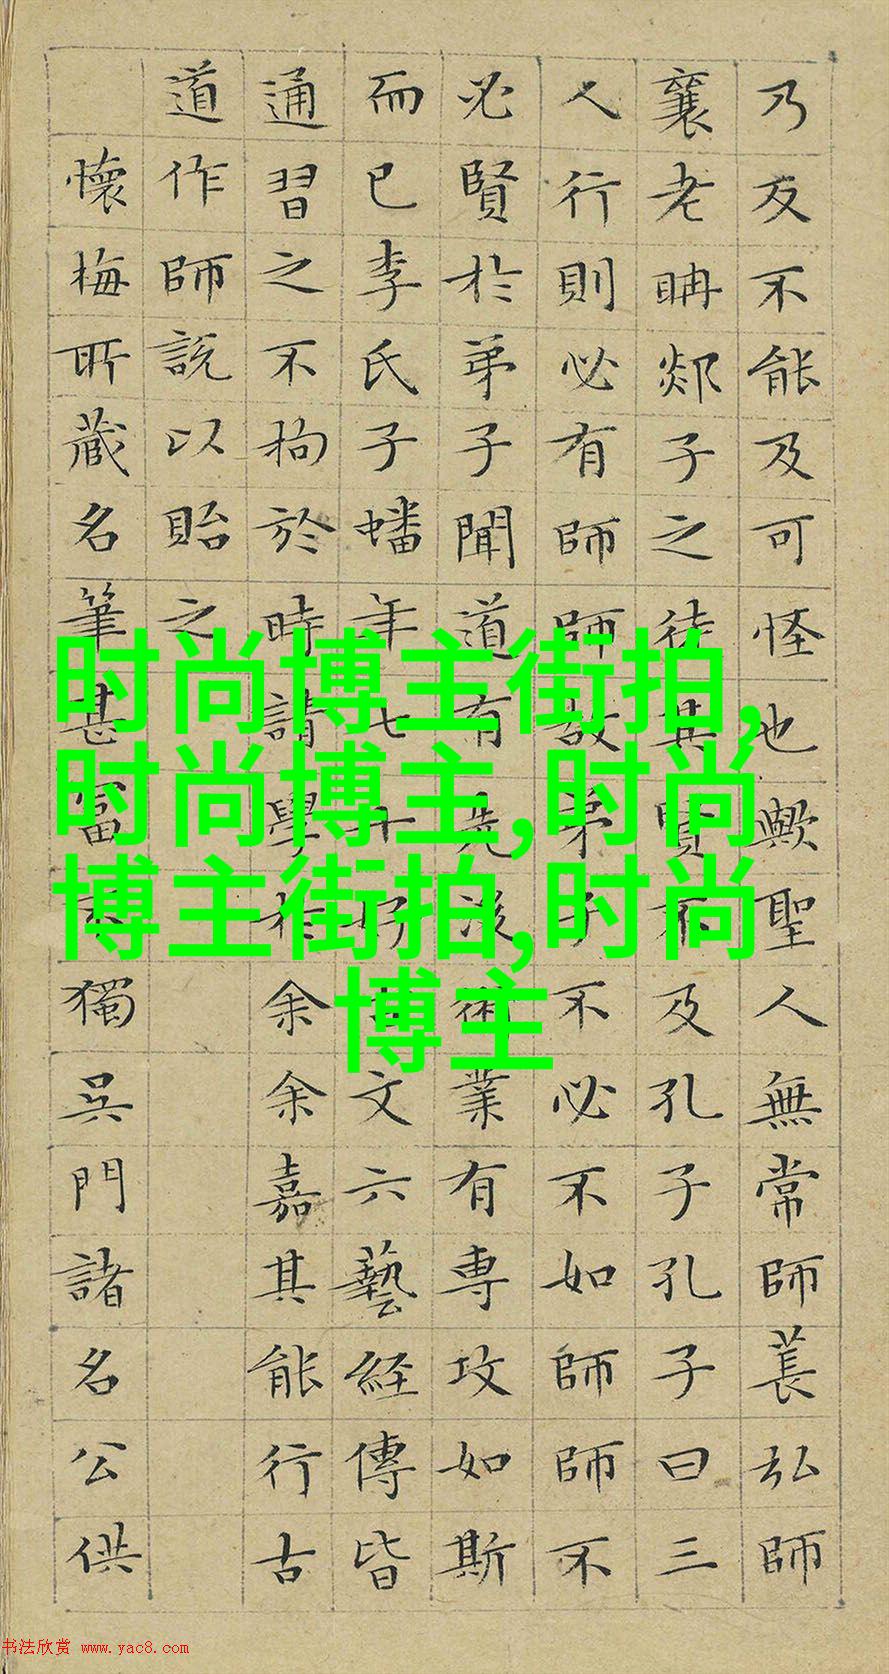 乃反不能及可怪也歟聖人無常師萇弘師
襄老聃郯子之徒其賢不及孔子孔子曰三
人行則必有師師故弟子不必不如師師不
必賢於弟子聞道有先後術業有專攻如斯
而已李氏子蟠年七十好古文六藝経傳皆
通習之不拘於時請學於余余嘉其能行古
道作師說以貽之
懷梅所藏名筆甚富不獨吳門諸名公供
时尚博主街拍,
时尚博主,时尚
博主街拍,时尚
博主
书法欣赏 www.yac8.com